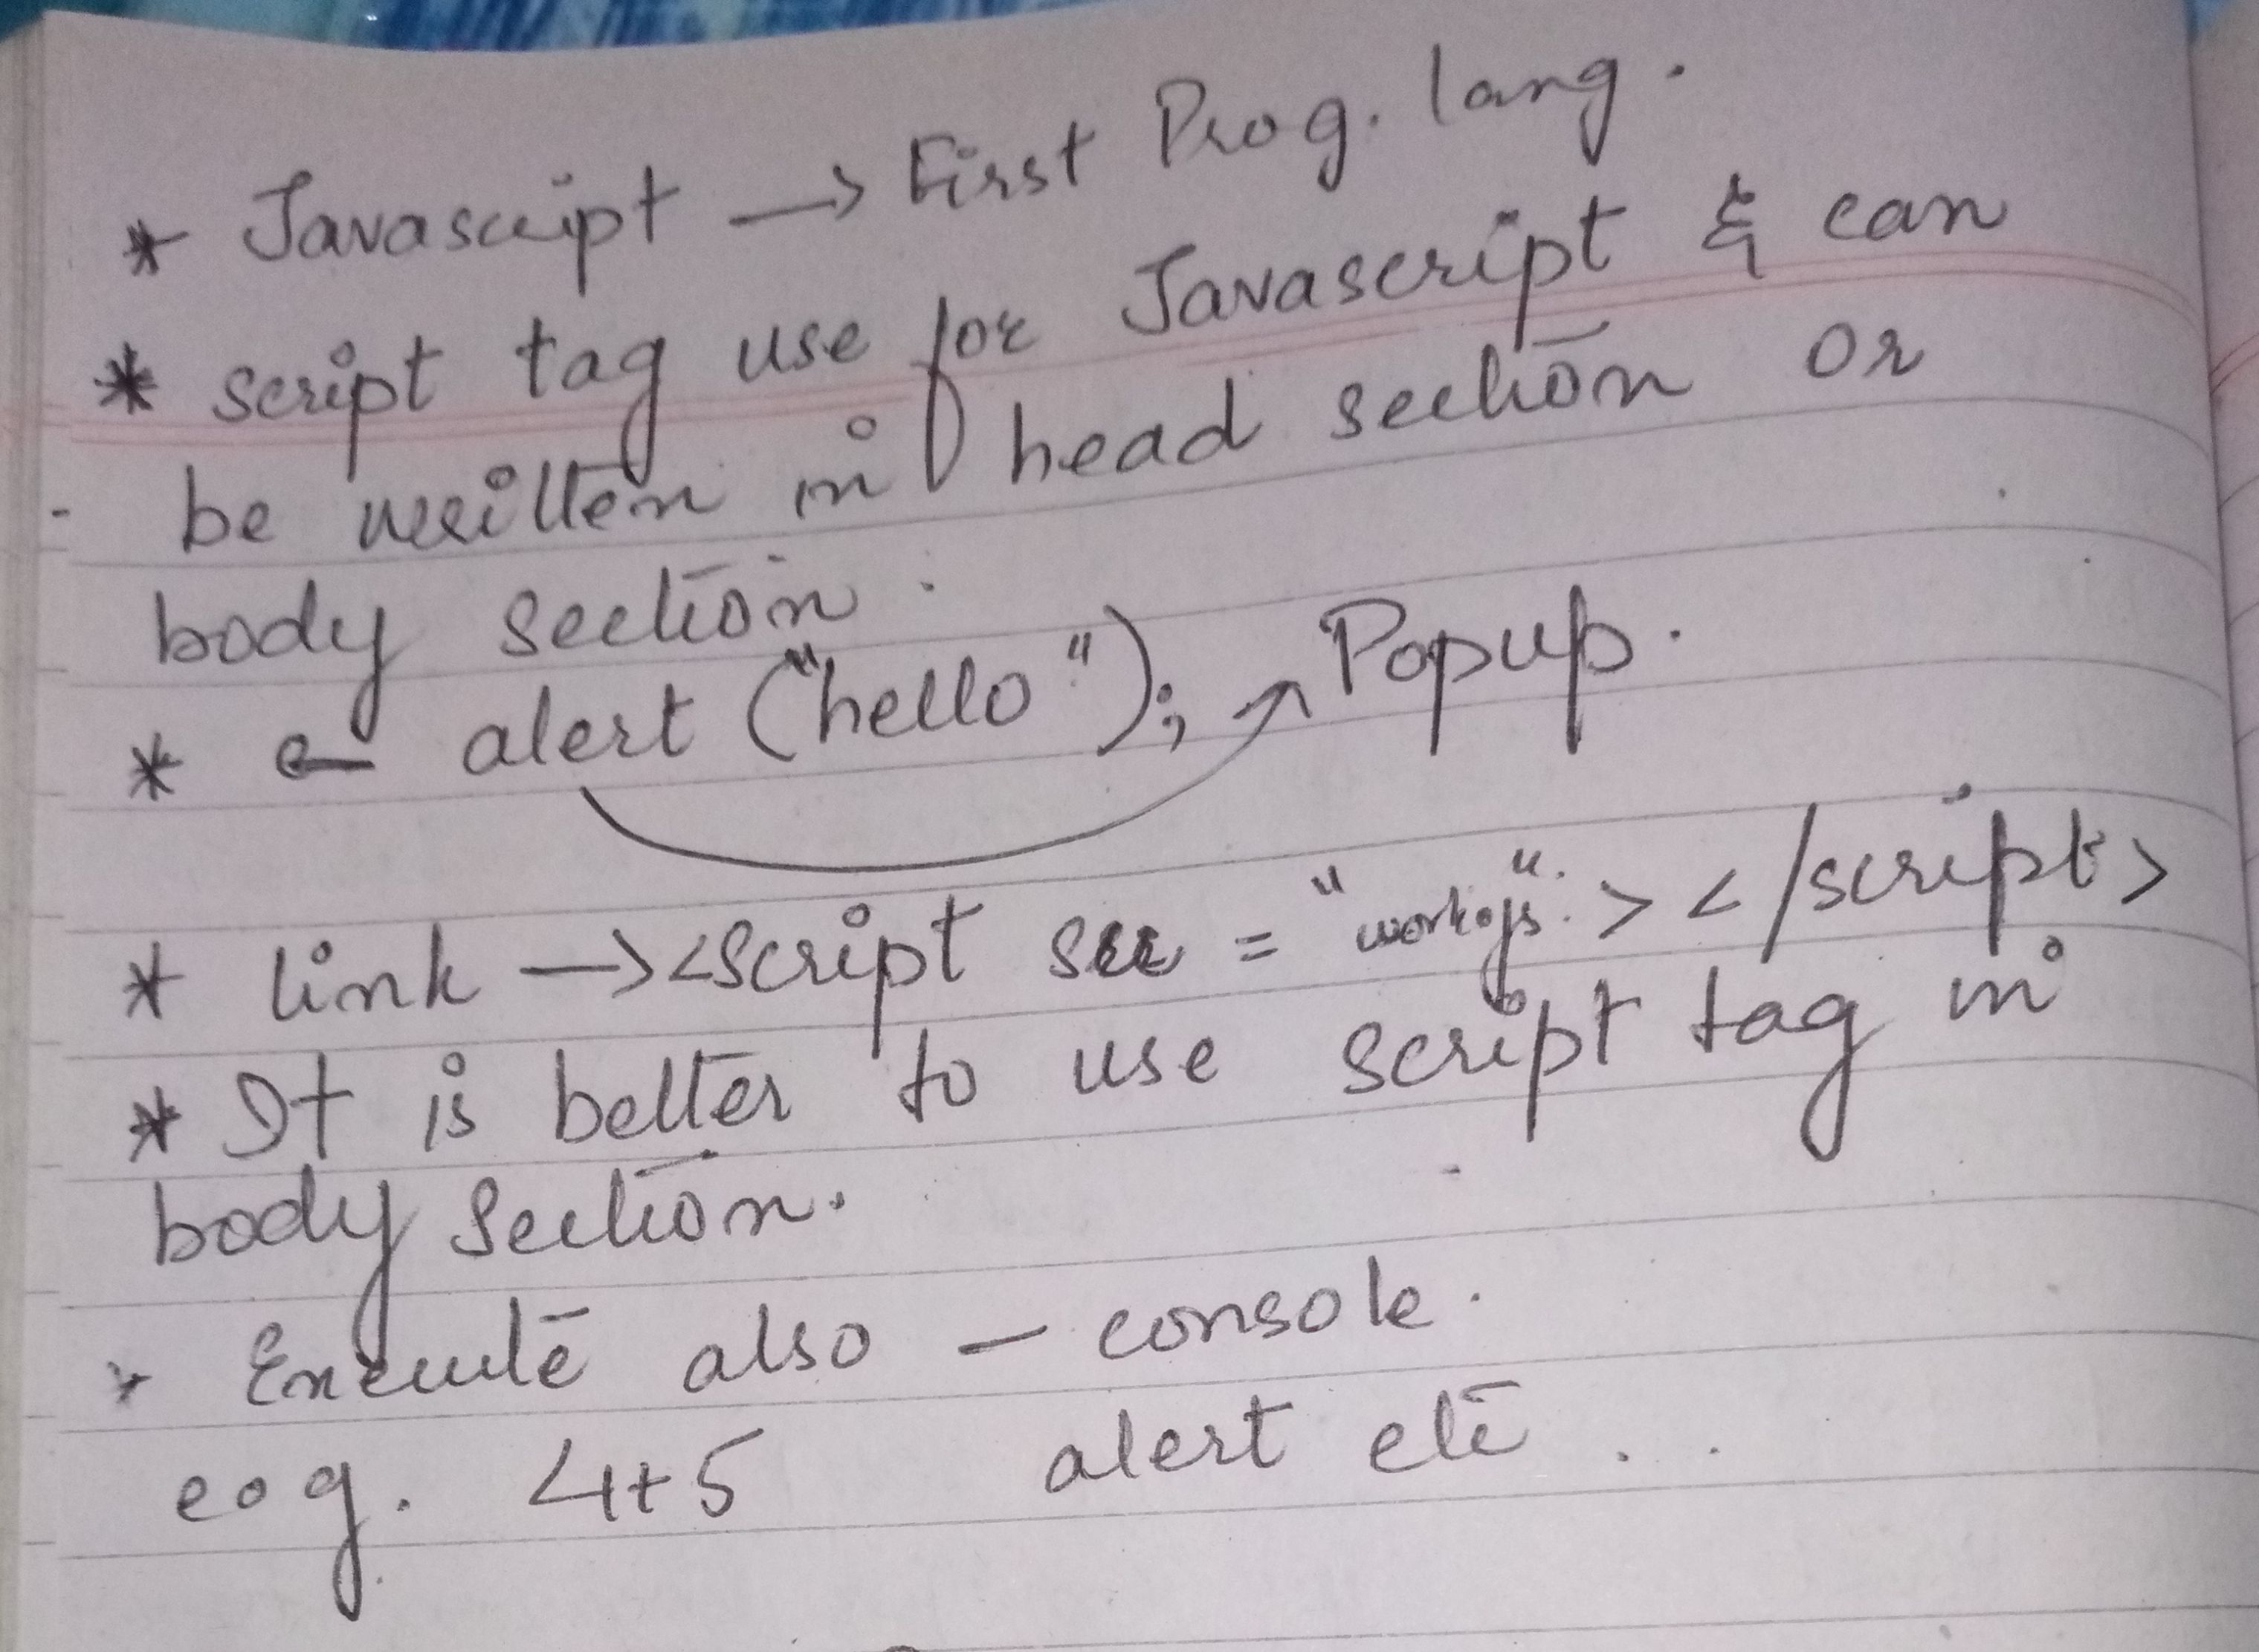 * Javascript → First Prog. lang.
* script tag use for Javascript & can
be written in head section or
body section.
* alert ("hello"); Popup.
* link → <script src = "work.js"></script>
* It is better to use script tag in
body section.
* Execute also - console.
e.g. 4+5 alert etc ..